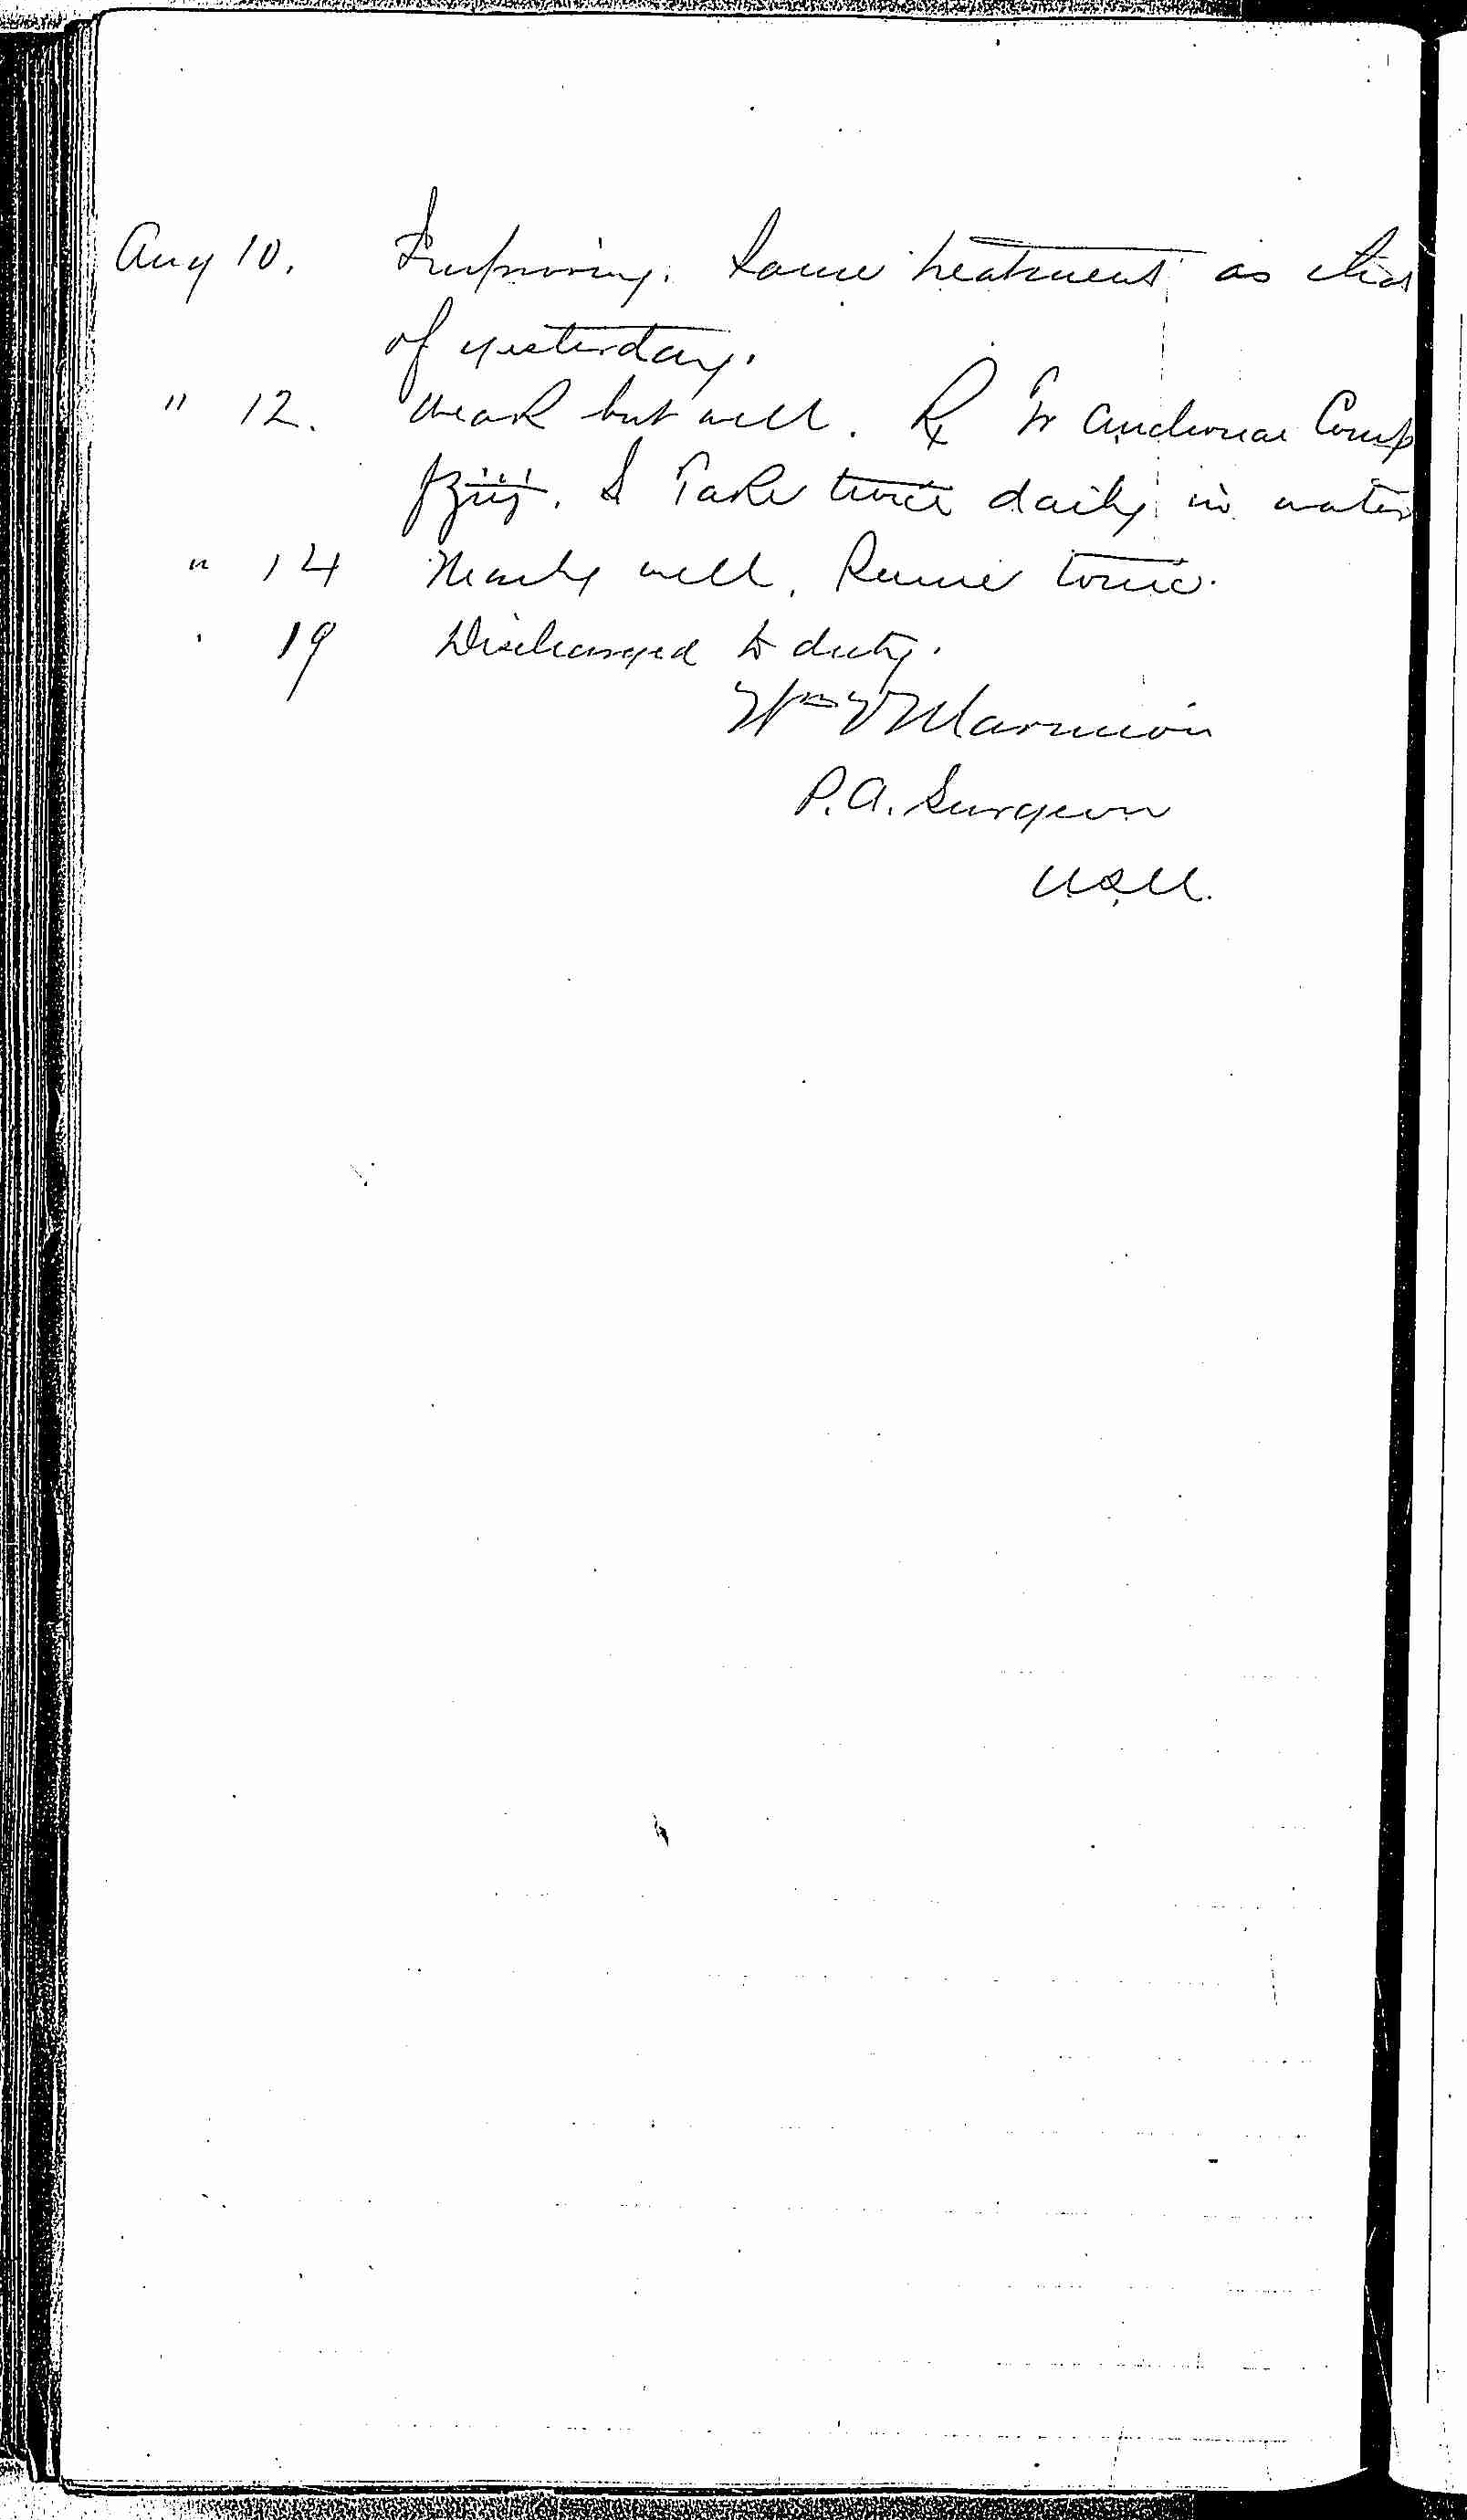 Aug 10. Improving. Same treatment as that
of yesterday.
" 12. Weak but well. ℞ Tr Cinchonae Comp
f℥iij. S Take twice daily in water
" 14 Nearly well. Same tonic.
" 19 Discharged to duty.
Wm V Marmion
P.A. Surgeon
U.S.N.